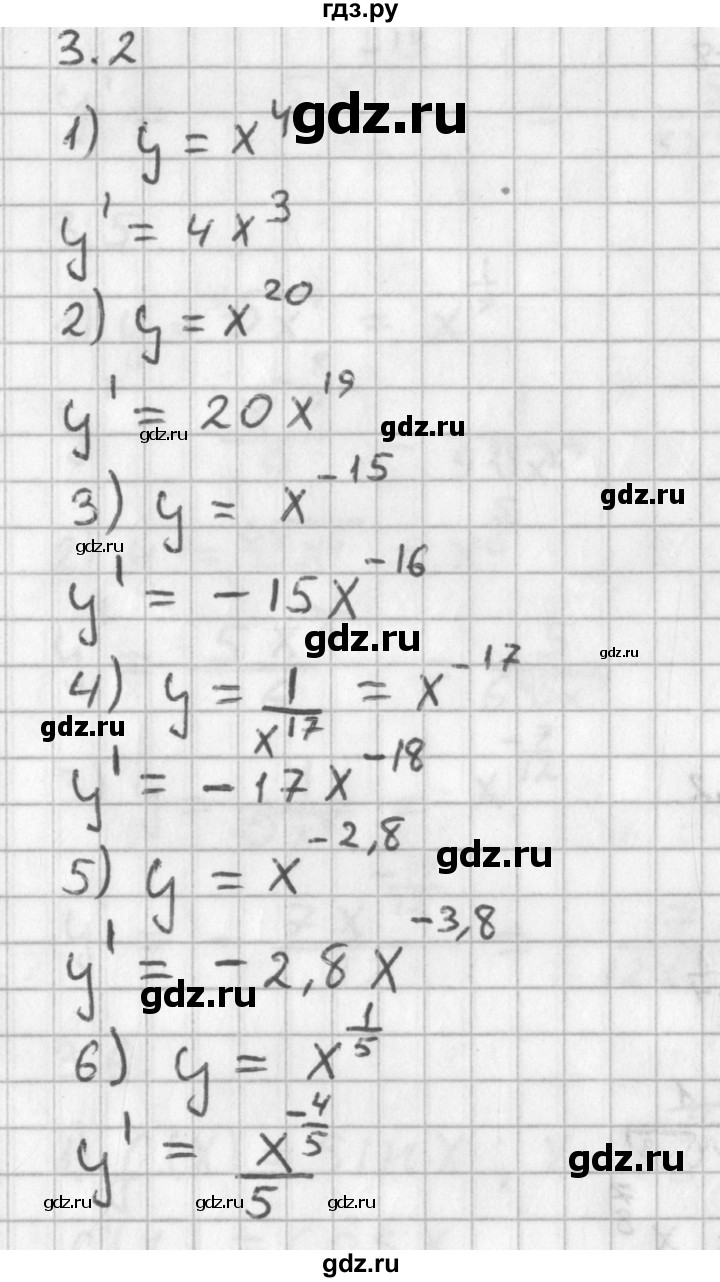 гдз.ру
3.2
gdz.ru
1) y = x⁴
y' = 4x³
2) y = x²⁰
y' = 20x¹⁹
gdz.ru
gdz.ru
3) y = x⁻¹⁵
gdz.ru
gdz.ru
y' = -15x⁻¹⁶
gdz.ru
gdz.ru
4) y = 1/x¹⁷ = x⁻¹⁷
gdz.ru
y' = -17x⁻¹⁸
5) y = x^(-2,8)
gdz.ru
y' = -2,8x^(-3,8)
gdz.ru
6) y = x^(1/5)
y' = x^(-4/5)/5
gdz.ru
gdz.ru
gdz.ru
gdz.ru
gdz.ru